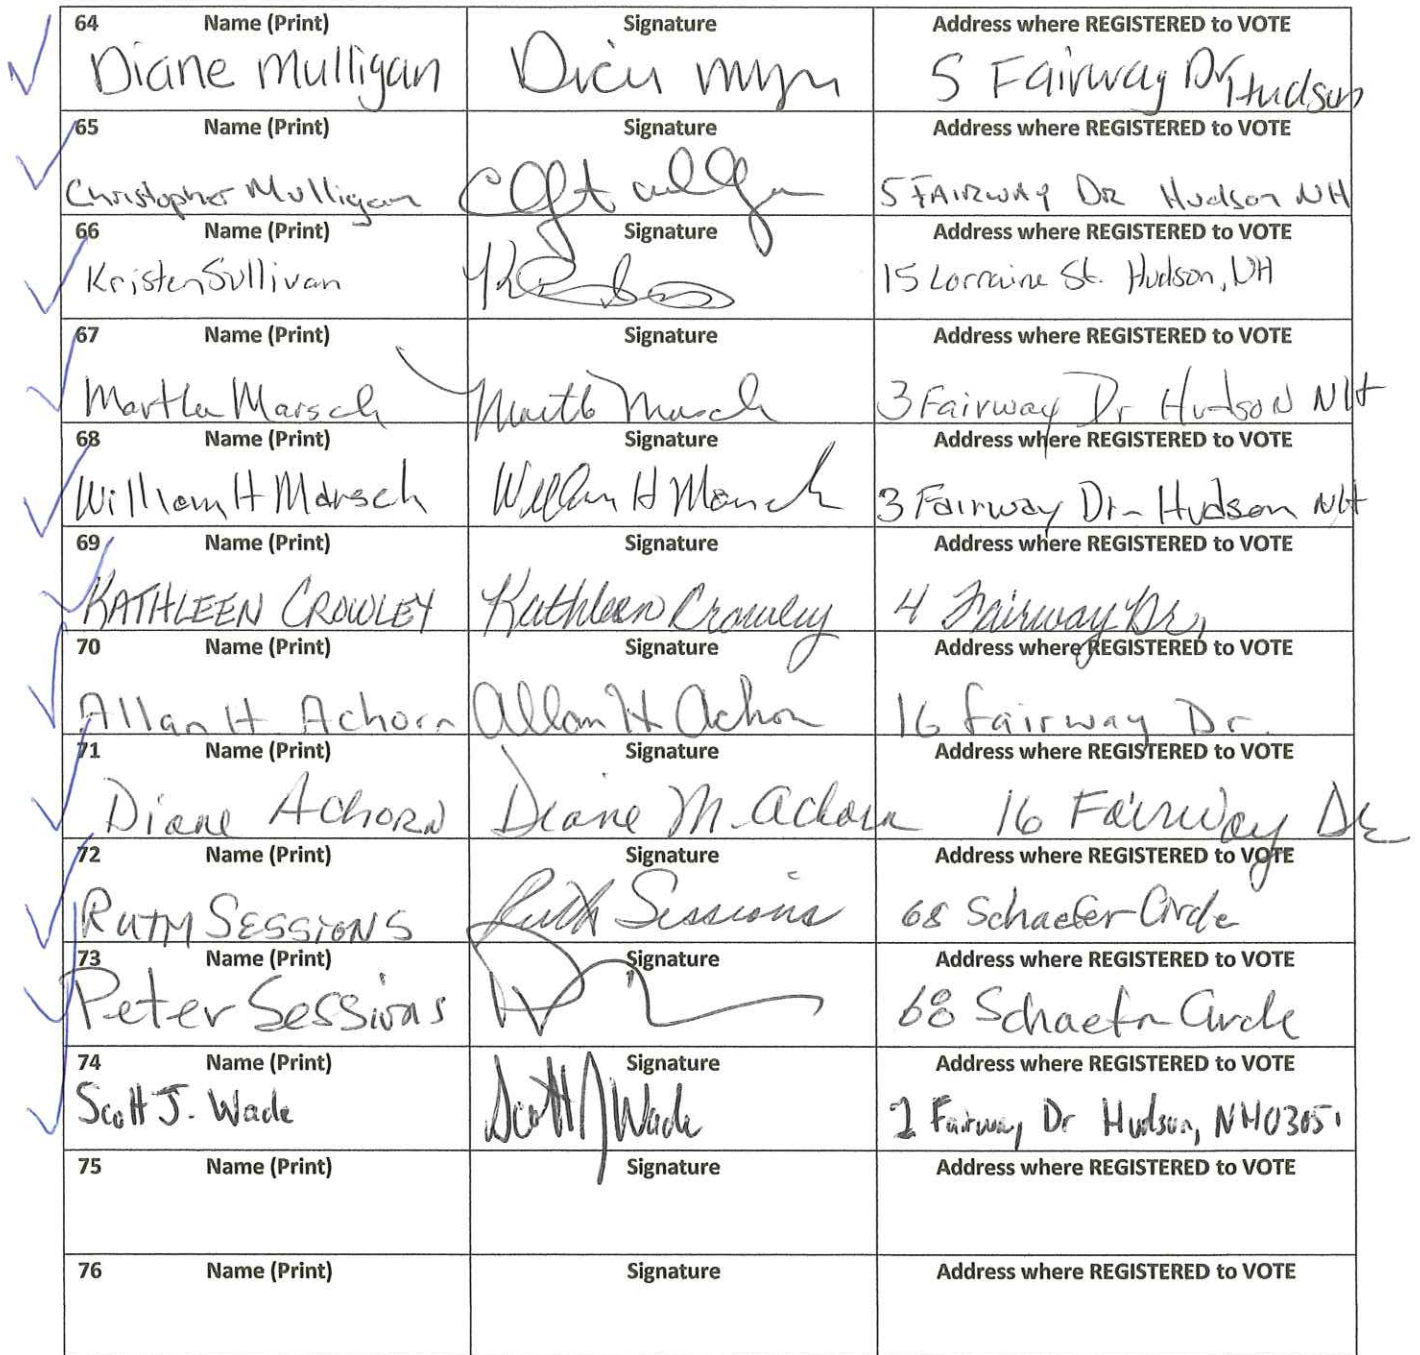 64 Name (Print) Signature Address where REGISTERED to VOTE
Diane Mulligan 5 Fairway Dr Hudson
65 Name (Print) Signature Address where REGISTERED to VOTE
Christopher Mulligan 5 FAIRWAY DR Hudson NH
66 Name (Print) Signature Address where REGISTERED to VOTE
Kristen Sullivan 15 Lorraine St. Hudson, NH
67 Name (Print) Signature Address where REGISTERED to VOTE
Martha Marsch 3 Fairway Dr Hudson NH
68 Name (Print) Signature Address where REGISTERED to VOTE
William H Marsch William H Marsch 3 Fairway Dr Hudson NH
69 Name (Print) Signature Address where REGISTERED to VOTE
KATHLEEN CROWLEY Kathleen Crowley 4 Fairway Dr.
70 Name (Print) Signature Address where REGISTERED to VOTE
Allan H Achorn Allan H Achorn 16 fairway Dr.
71 Name (Print) Signature Address where REGISTERED to VOTE
Diane Achorn Diane M. Achorn 16 Fairway Dr
72 Name (Print) Signature Address where REGISTERED to VOTE
RUTH SESSIONS Ruth Sessions 68 Schaefer Circle
73 Name (Print) Signature Address where REGISTERED to VOTE
Peter Sessions 68 Schaefer Circle
74 Name (Print) Signature Address where REGISTERED to VOTE
Scott J. Wade Scott J Wade 2 Fairway Dr Hudson, NH 03051
75 Name (Print) Signature Address where REGISTERED to VOTE
76 Name (Print) Signature Address where REGISTERED to VOTE